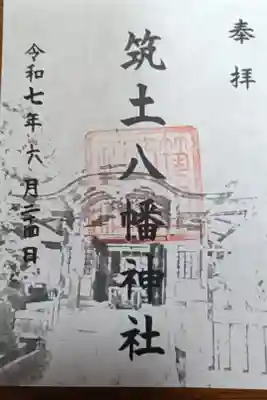 奉拝
筑土八幡神社
令和七年六月二四日